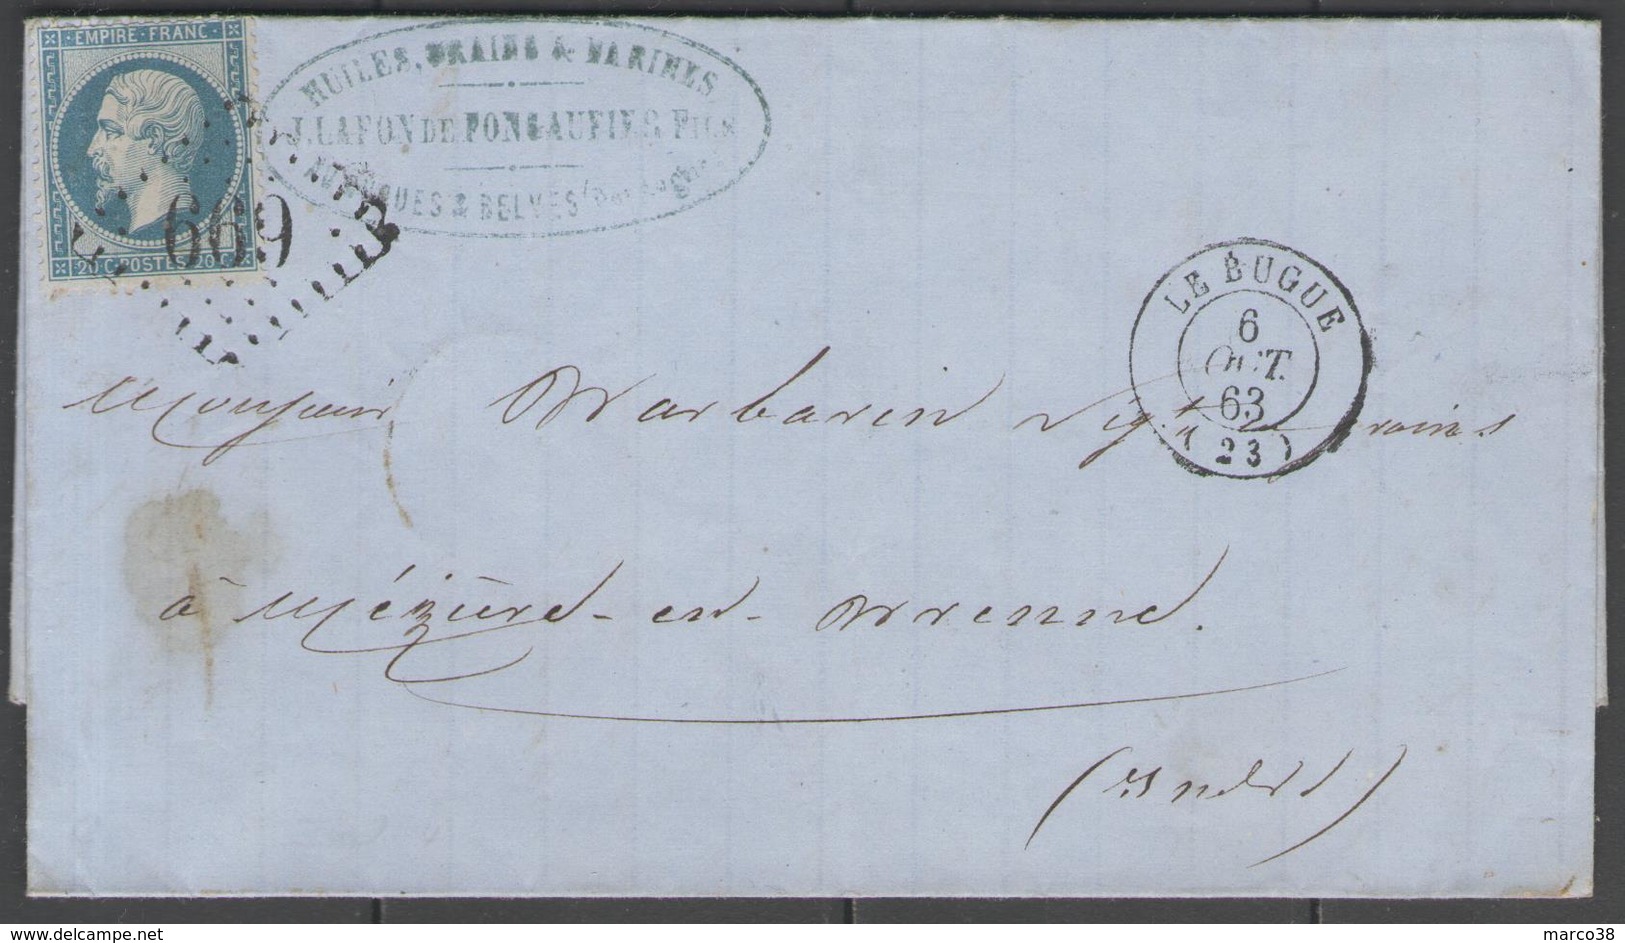 EMPIRE·FRANC·
20 C·POSTES·20 C·
669
HUILES, GRAINS & FARINES
J. LAFON DE FONGAUFIER FILS
& BELVÈS
LE BUGUE
6
OCT.
63
(23)
Monsieur Barbarin Nég.t en Grains
à Mézière-en-Brenne.
(Indre)
www.delcampe.net
marco38